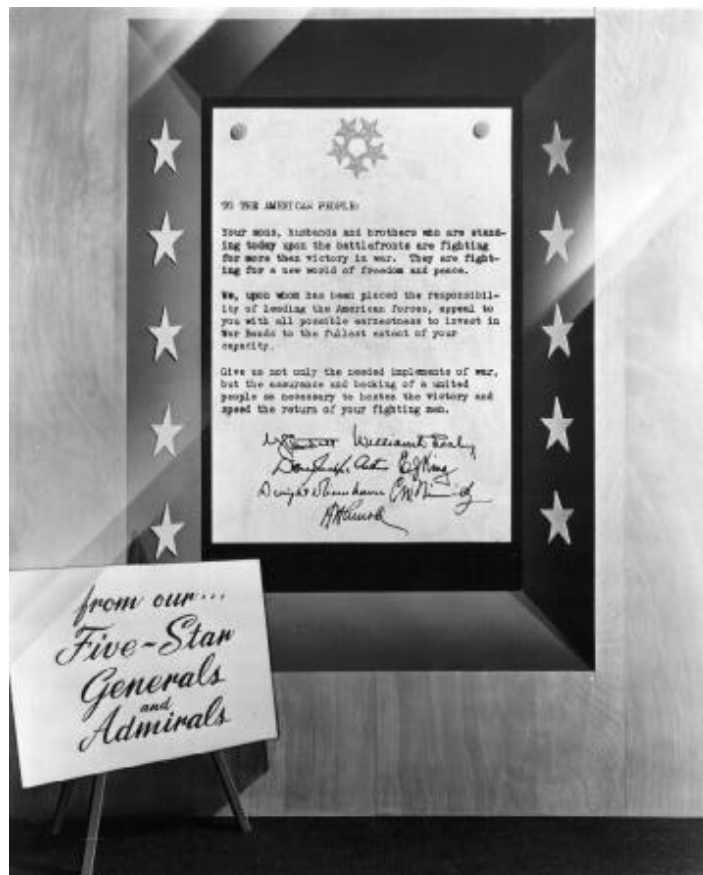 TO THE AMERICAN PEOPLE:
Your sons, husbands and brothers who are stand-
ing today upon the battlefronts are fighting
for more than victory in war. They are fight-
ing for a new world of freedom and peace.
We, upon whom has been placed the responsibil-
ity of leading the American forces, appeal to
you with all possible earnestness to invest in
War Bonds to the fullest extent of your
capacity.
Give us not only the needed implements of war,
but the assurance and backing of a united
people so necessary to hasten the victory and
speed the return of your fighting men.
William D. Leahy
E J King
Dwight D Eisenhower C W Nimitz
H H Arnold
from our...
Five-Star
Generals
and
Admirals